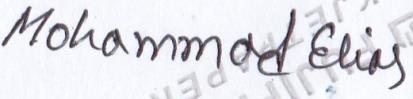 Mohammad Elias